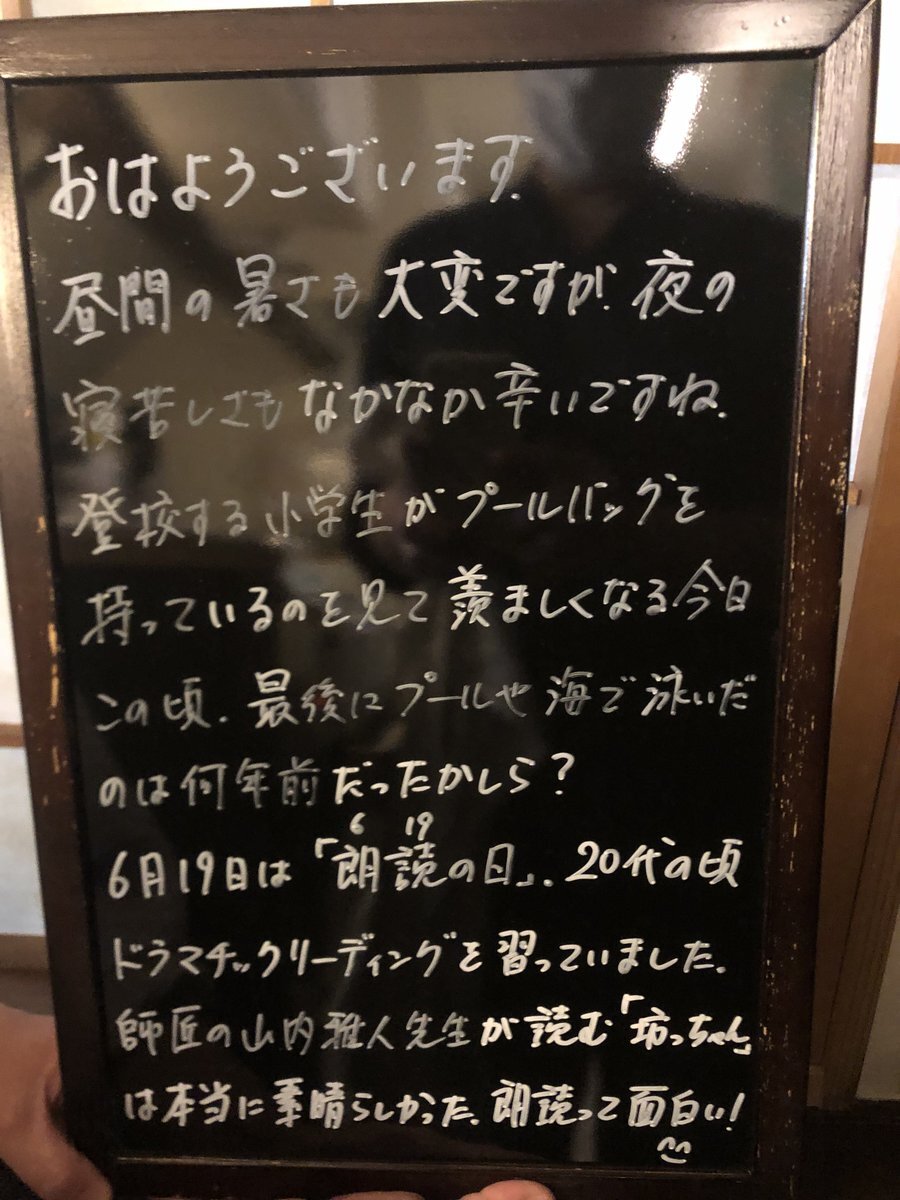 おはようございます.
昼間の暑さも大変ですが. 夜の
寝苦しさもなかなか辛いですね.
登校する小学生がプールバッグを
持っているのを見て羨ましくなる今日
この頃. 最後にプールや海で泳いだ
のは何年前だったかしら?
6 19
6月19日は「朗読の日」. 20代の頃
ドラマチックリーディングを習っていました.
師匠の山内雅人先生が読む「坊っちゃん」
は本当に素晴らしかった. 朗読って面白い!